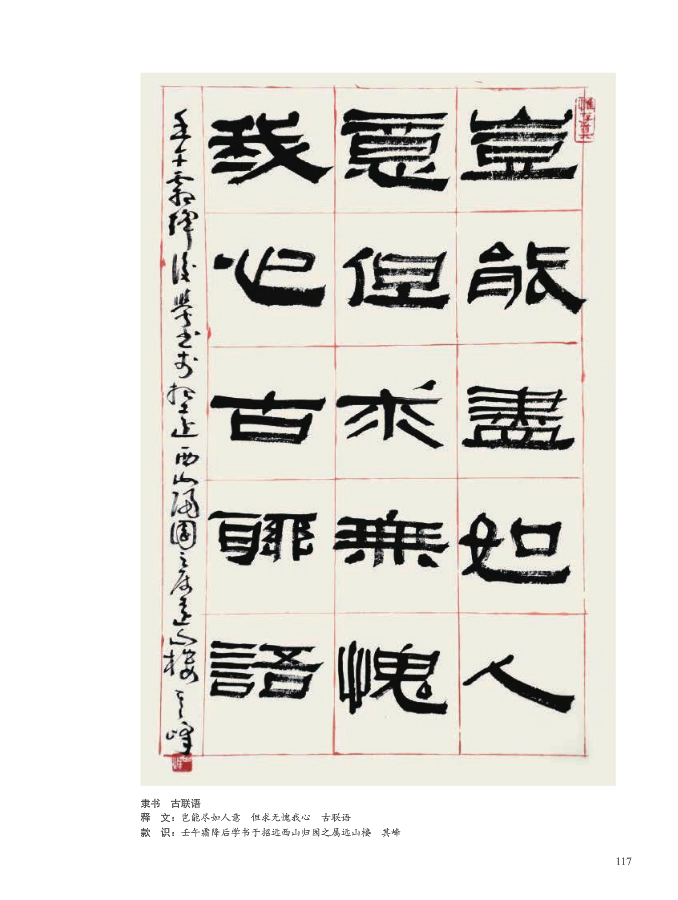 豈能盡如人
意但求無愧
我心古聯語
壬午霜降後學書於招遠西山歸園之屬遠山樓 其峰
隶书 古联语
释 文：岂能尽如人意 但求无愧我心 古联语
款 识：壬午霜降后学书于招远西山归园之属远山楼 其峰
117